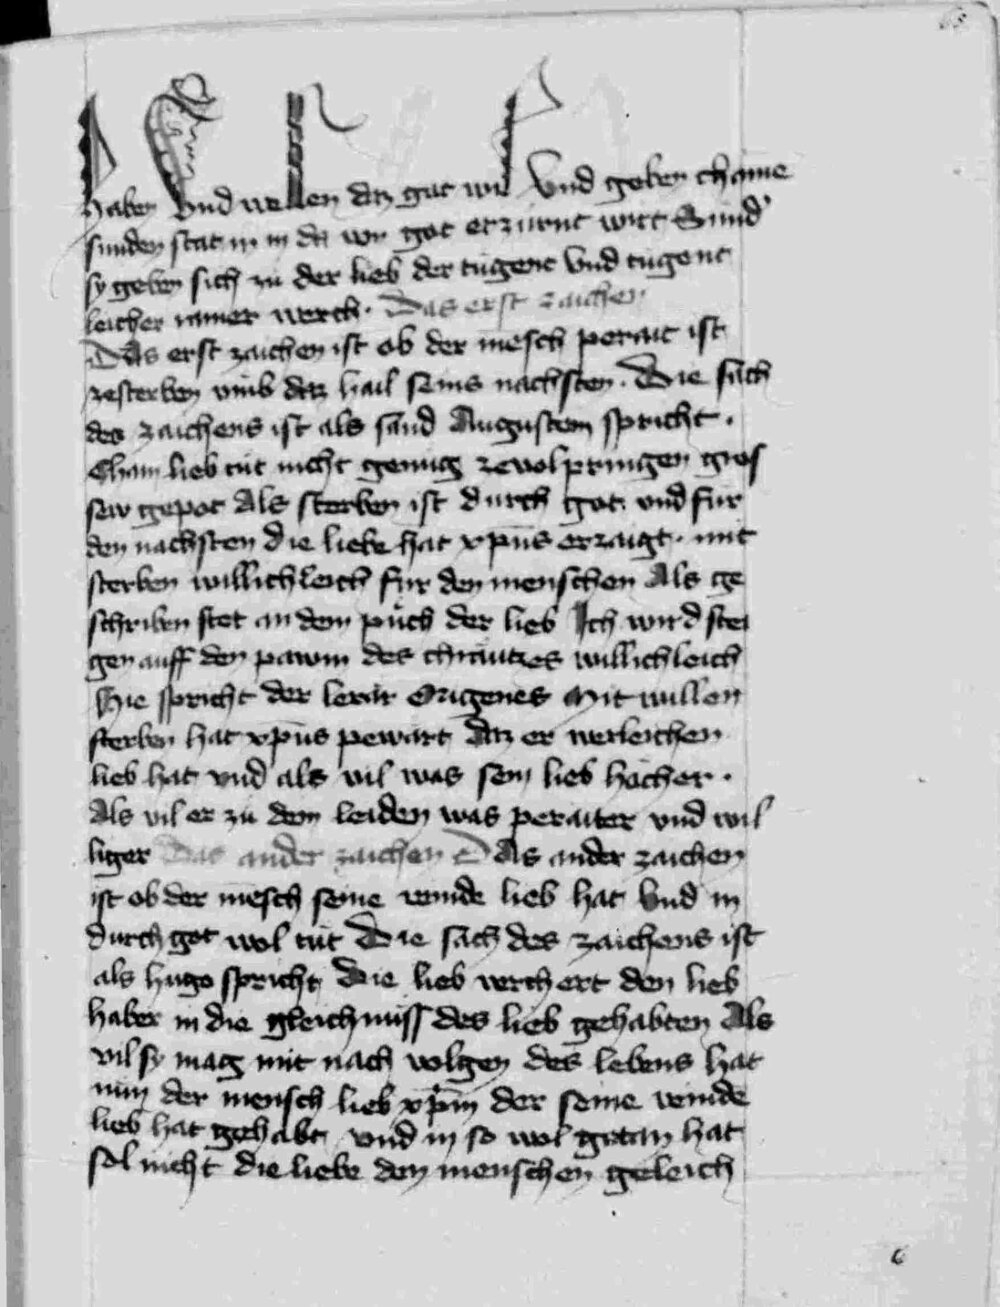 haben vnd wellen daz gut wil Vnd geben chaine
sunden stat in in da von got erzürnt wirt Sunder
sy geben sich zu der lieb der tugent Vnd tugent
leicher werch. Das erst zaichen
Das erst zaichen ist ob der mēsch perait ist
zesterben vmb daz hail seins nachsten. Die sach
des zaichens ist als sand Augustein spricht.
Cham lieb tůt nicht genug zevolpringen gros
ser gepot Als sterben ist durch got. vnd für
den nachsten die liebe hat xp̄us erzaigt. mit
sterben willichleich für den menschen Als ge
schriben stet an dem půch der lieb Ich wird stei
gen auff den pawm des chräutzes willichleich
Hie spricht der lerär Origenes Mit willen
sterben hat xp̄us pewärt daz er werleichen
lieb hat vnd als vil was sein lieb hocher.
Als vil er zů dem leiden was peraiter vnd wil
liger Das ander zaichen Das ander zaichen
ist ob der mēsch seine veinde lieb hat Vnd in
durch got wol tůt Die sach des zaichens ist
als hugo spricht Die lieb verchert den lieb
haber in die gleichnüss des lieb gehabten Als
vil sy mag mit nach volgen des lebens hat
nun der mensch lieb xp̄m der seine veinde
lieb hat gehabt vnd in so wol getan hat
sol nicht die liebe den menschen geleich